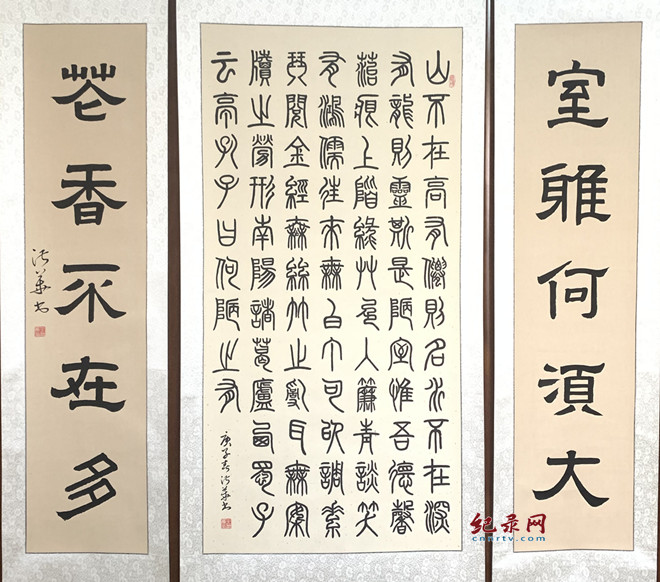 室雅何須大
山不在高有僊則名水不在深
有龍則靈斯是陋室惟吾德馨
菭痕上階綠艸色入簾青談笑
有鴻儒往來無白丁可以調素
琴閱金經無絲竹之亂耳無案
牘之勞形南陽諸葛廬西蜀子
云亭孔子曰何陋之有
庚子春
花香不在多
纪录网
cnyrtv.com